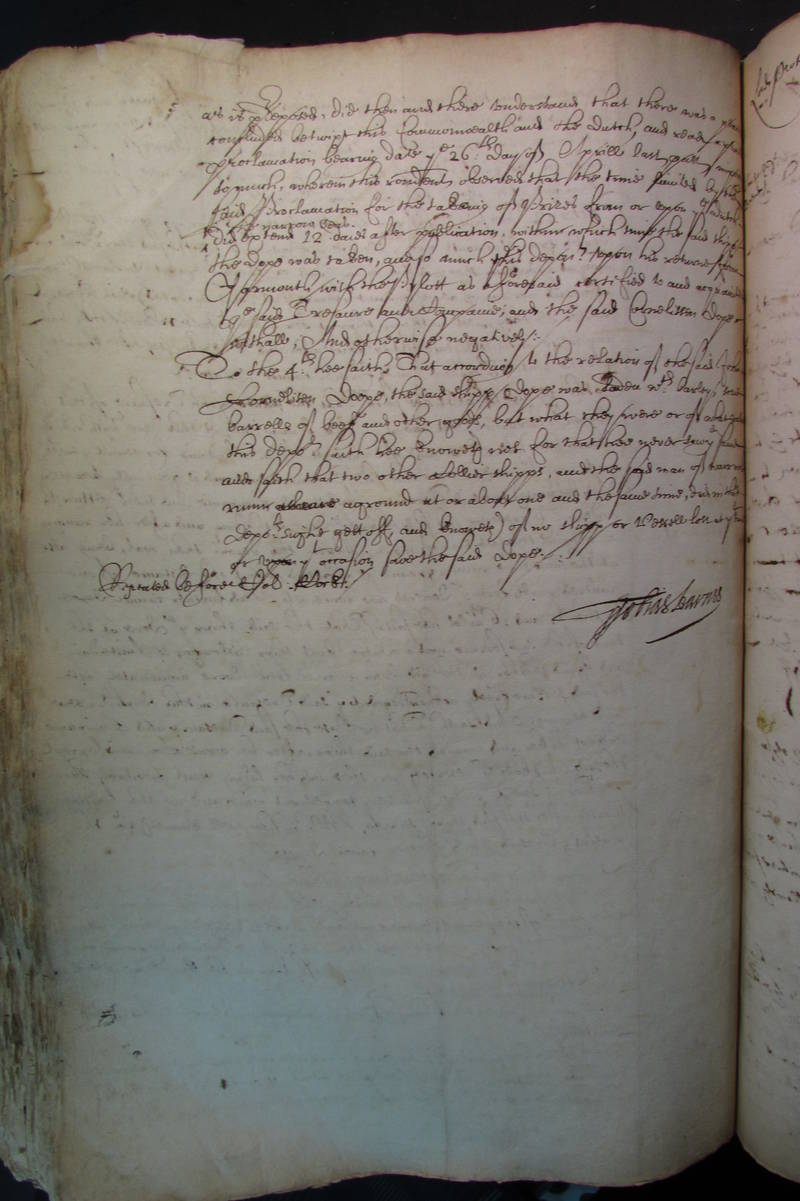 as is predeposed, did then and there understand that there was a peace
concluded betwixt this Commonwealth and the Dutch, and read a
proclamation bearing date ye 26th day of Aprill last past
so much, wherein this rendent observed that the time limited by the
said Proclamation for the takeing of Prizes from or upon
the narrow seas.
did extend 12 daies after publication, within which time the said shipp
the Dope was taken, and so much this depont upon his returne from
Yarmouth with the Pylott as aforesaid certified to and acquainted
ye said Tresaure and Companie; and the said Cornelison Dope
withall, And otherwise negatively:.
To the 4th hee saith, That according to the relation of the said John
Cornelison Doope, the said shipp Dope was laden wth barley, some
barrells of beef and other goods, but what they were or of what
this depont saith hee knoweth not for that hee never saw the same
and saith that two other Collier shipps, and the said man of warr
runn aground at or about one and the same time,
depots sight gett off, and knoweth of no shipp or Vessell lost at ye time
or upon ye occasion save the said Dope.:.
Repeated before Col. Cock.
Tobias Barnes